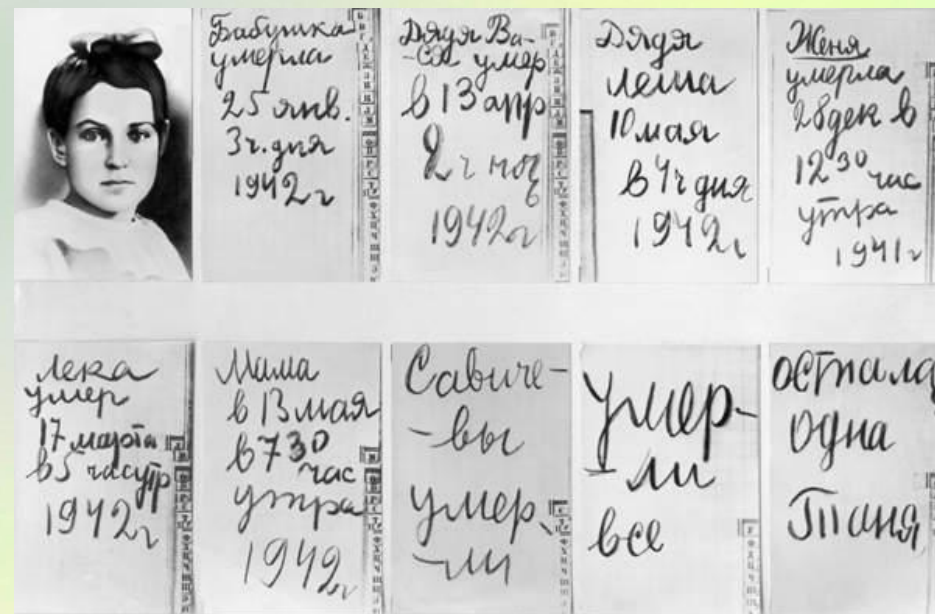 Бабушка
умерла
25 янв.
3ч. дня
1942 г
Дядя Ва-
-ся умер
в 13 апр
2 ч ноч
1942 г
Дядя
Леша
10 мая
в 4ч дня
1942 г
Женя
умерла
28 дек в
12 30 час
утра
1941 г
Лека
умер
17 марта
в 5 час утр
1942 г
Мама
в 13 мая
в 7 30
час
утра
1942 г
Савиче-
-вы
умер-
-ли
умер-
-ли
все
остала
одна
Таня